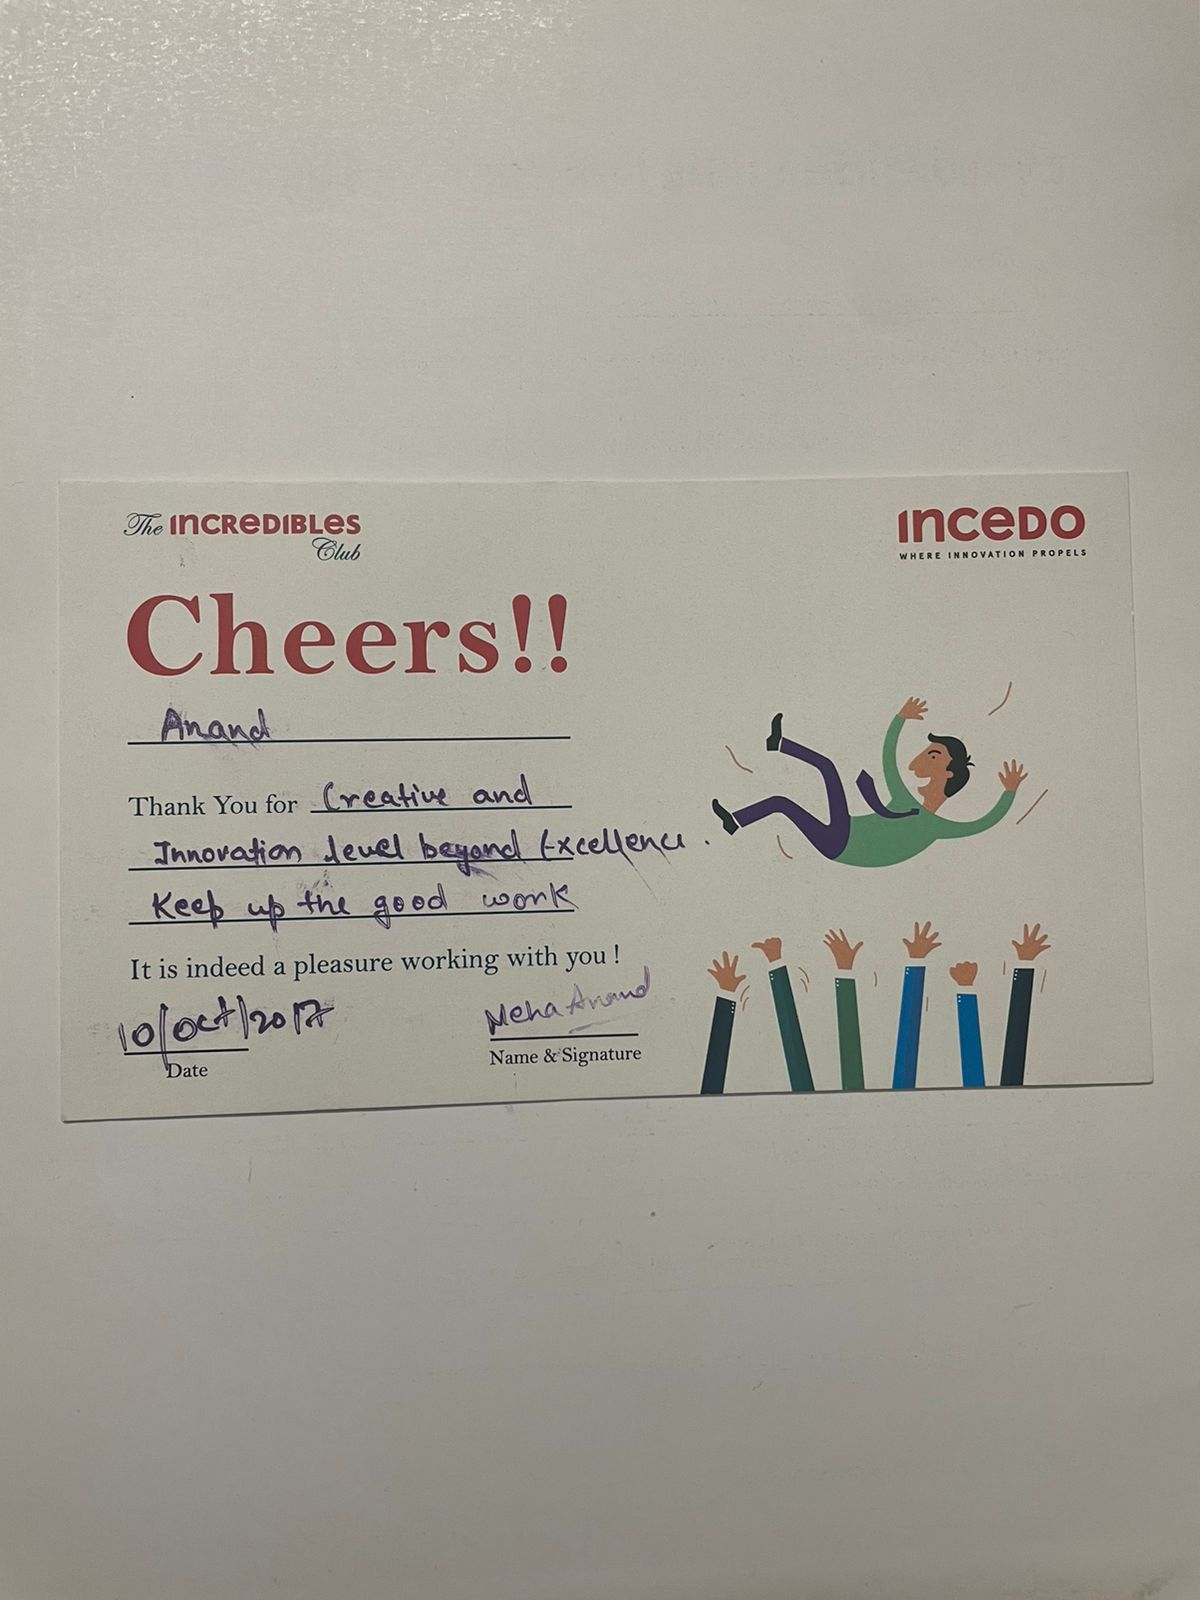 The INCREDIBLES Club
INCEDO
WHERE INNOVATION PROPELS
Cheers!!
Anand
Thank You for Creative and
Innovation level beyond Excellence.
Keep up the good work
It is indeed a pleasure working with you !
10/Oct/2017
Neha Anand
Date
Name & Signature